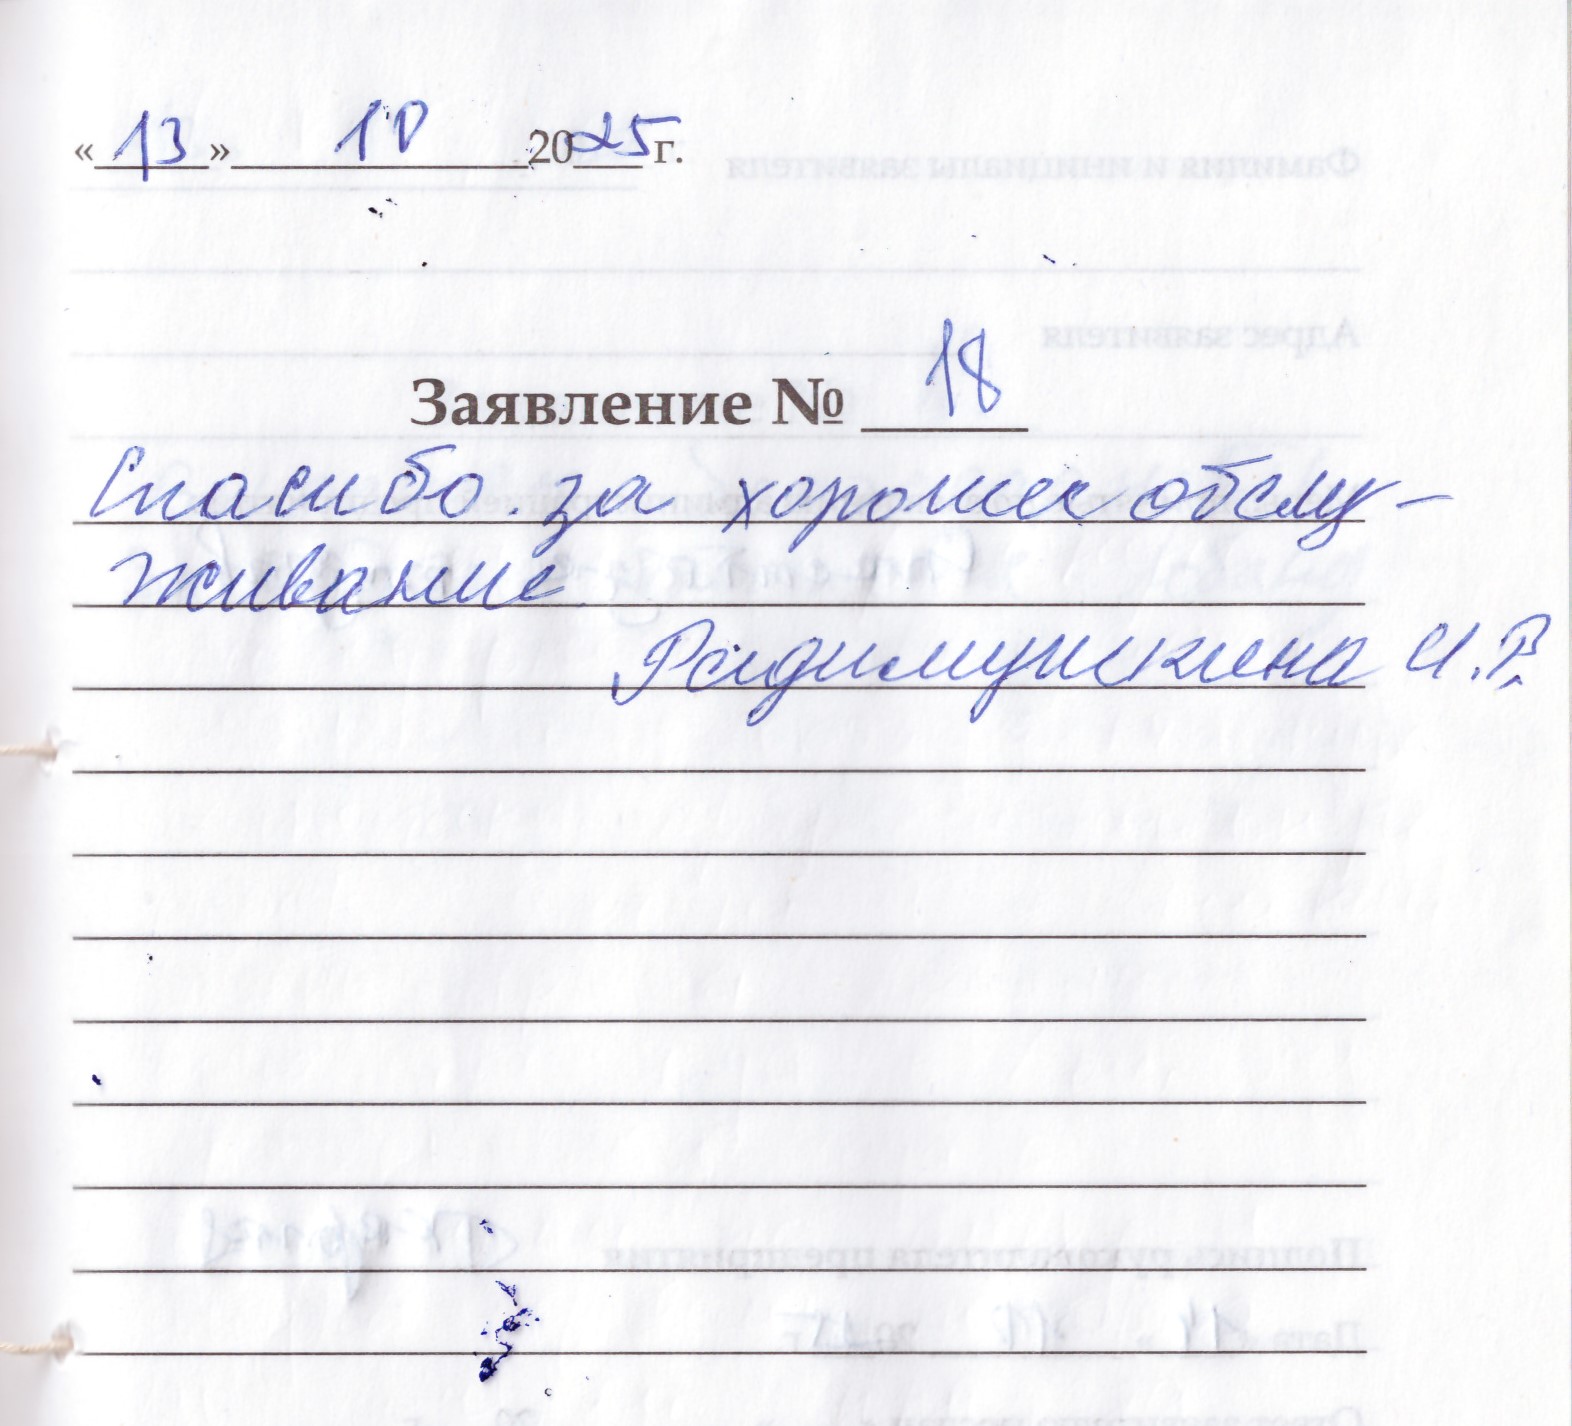 «13» 10 2025 г.
Заявление № 18
Спасибо за хорошее обслу-
живание
Радимушкина И.В.